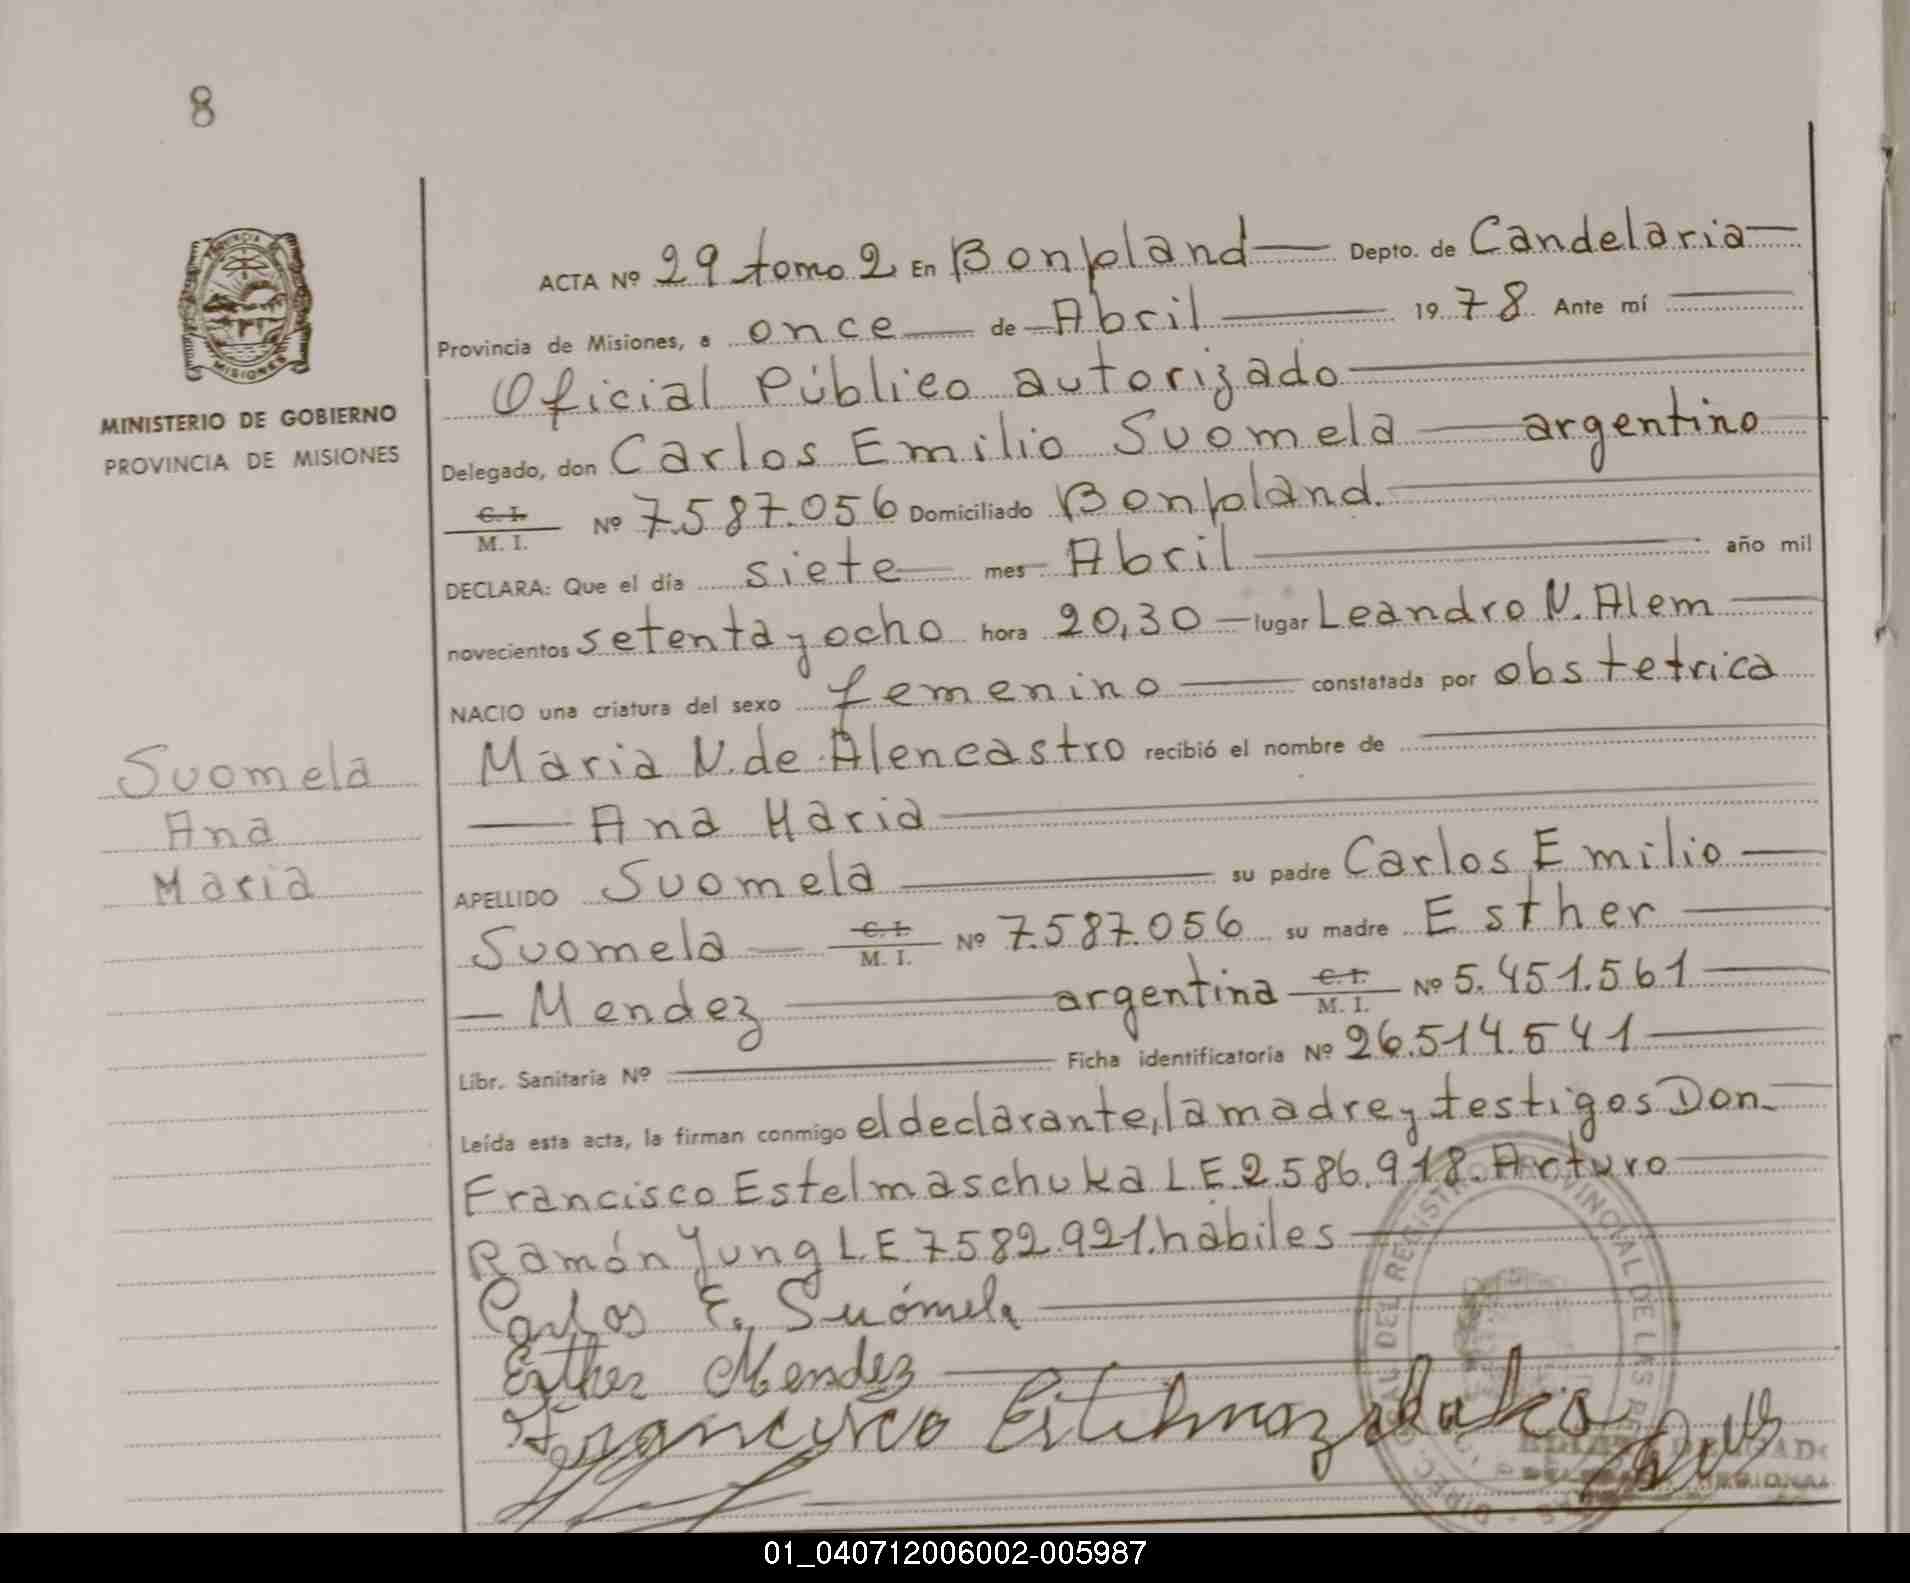 8
PROVINCIA DE
MISIONES
MINISTERIO DE GOBIERNO
PROVINCIA DE MISIONES
Suomela
Ana
Maria
ACTA Nº 29 tomo 2 En Bonpland Depto. de Candelaria
Provincia de Misiones, a once de Abril 1978 Ante mí
Oficial Público autorizado
Delegado, don Carlos Emilio Suomela argentino
C. I. / M. I. Nº 7.587.056 Domiciliado Bonpland.
DECLARA: Que el día siete mes Abril año mil
novecientos setenta y ocho hora 20,30 lugar Leandro N. Alem
NACIO una criatura del sexo femenino constatada por obstetrica
Maria N. de Alencastro recibió el nombre de
Ana Maria
APELLIDO Suomela su padre Carlos Emilio
Suomela C. I. / M. I. Nº 7.587.056 su madre Esther
Mendez argentina C. I. / M. I. Nº 5.451.561
Libr. Sanitaria Nº Ficha identificatoria Nº 26.514.541
Leída esta acta, la firman conmigo el declarante, la madre y testigos Don
Francisco Estelmaschuka L E 2.586.918. Arturo
Ramón Yung L.E 7.582.921. hábiles
Carlos E. Suómela
Esther Mendez
Francisco
REGIONAL
01_040712006002-005987